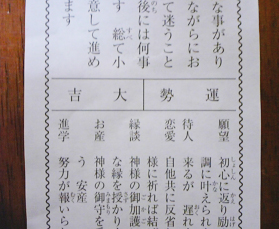 な事があり
ながらにお
て迷うこと
後には何事
す 総て小
意して進め
ます
運勢
大吉
願望 初心に返り励
調に叶えられ
待人 来るが 遅れ
恋愛 自他共に反省
様に祈れば結
縁談 神様の御加護
な縁を授かり
お産 神様の御守を
う 安産
進学 努力が報いら